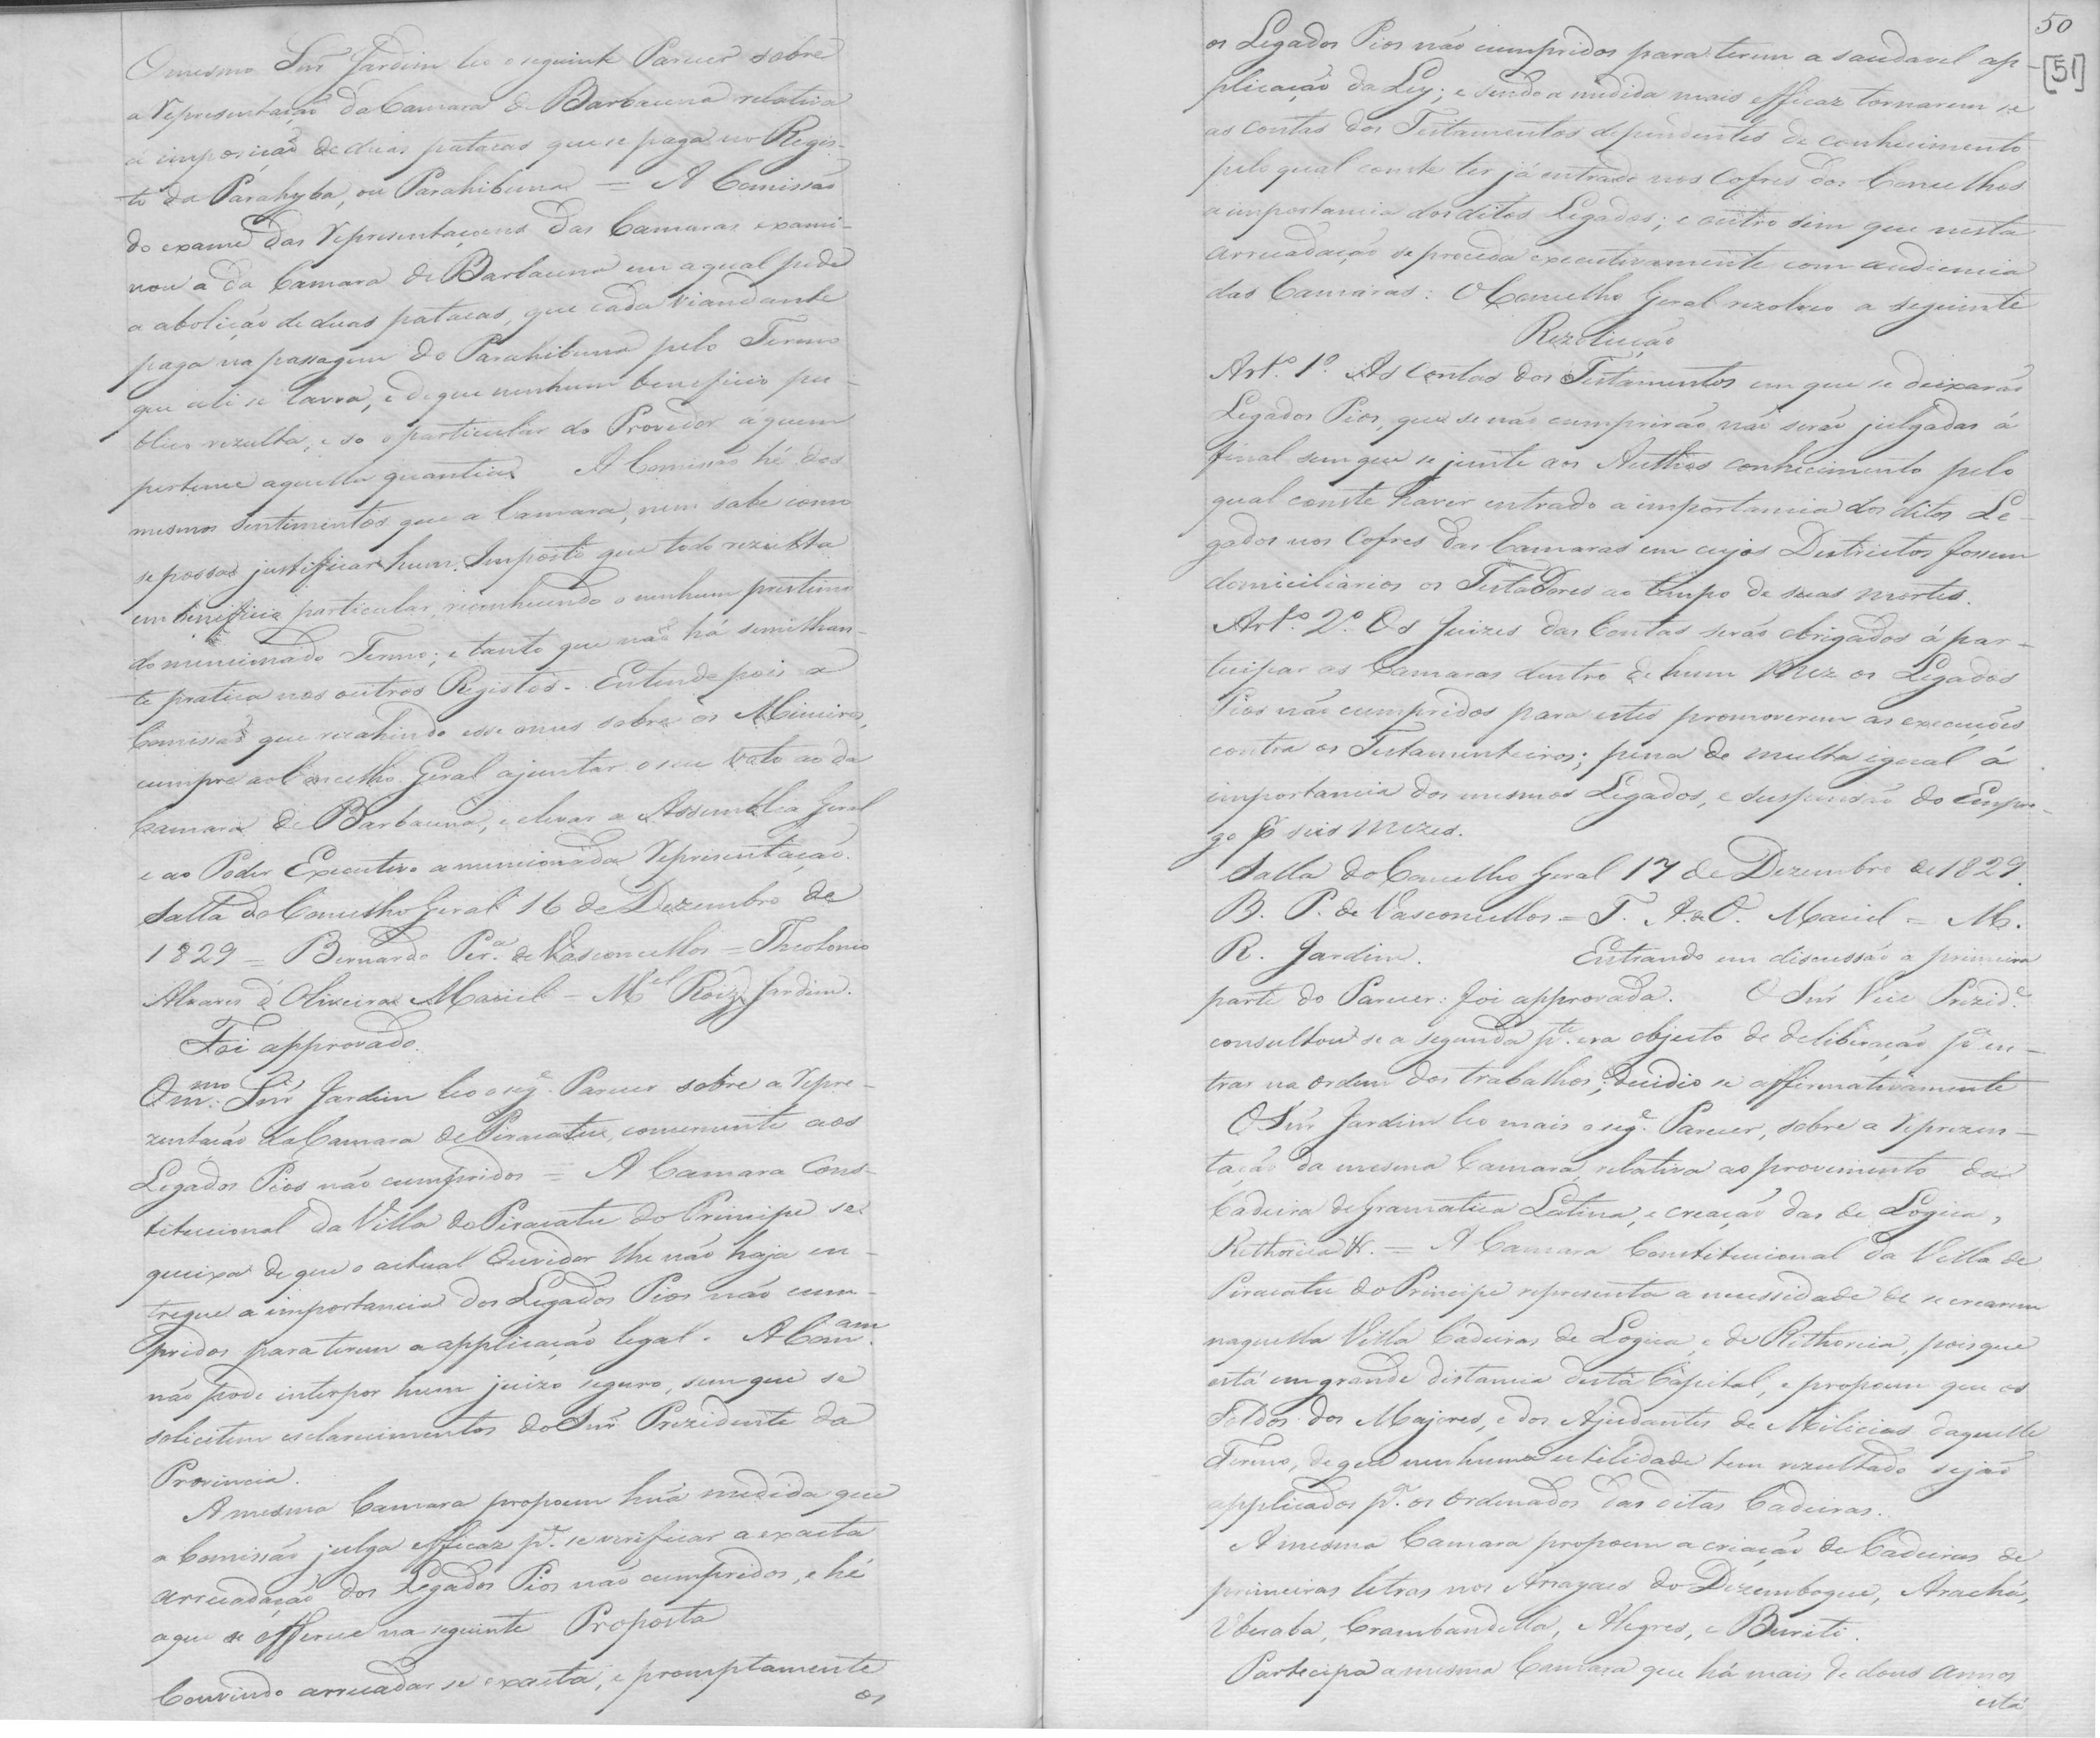 O mesmo Snr̃ Jardim leo o seguinte Parecer sobre
a Representação da Camara de Barbacena relativa
á imposição de duas patacas que se paga no Regis-
to da Parahyba, ou Parahibuna = A Comissão
do exame das Representaçoens das Camaras exami-
nou a da Camara de Barbacena em a qual pede
a abolição de duas patacas, que cada viandante
paga na passagem do Parahibuna pelo Termo
que ali se lavra, e de que nenhum beneficio pu-
blico rezulta, e so o particular do Provedor á quem
pertence aquella quantia. A Comissão hé dos
mesmos sentimentos que a Camara, nem sabe como
se possa justificar hum Imposto que todo rezulta
em beneficio particular, reconhecendo o nenhum prestimo
do mencionado Termo; e tanto que não há semilhan-
te pratica nos outros Registos. Entende pois a
Comissão que recahindo esse onus sobre os Mineiros,
cumpre ao Concelho Geral ajuntar o seu voto ao da
Camara de Barbacena, e elevar a Assemblea Geral
e ao Poder Executivo a mencionada Representação.
Salla do Concelho Geral 16 de Dezembro de
1829 = Bernardo Per.ª de Vasconcellos = Theotonio
Alvares d'Oliveira Maciel = M.el Roiz Jardim.
Foi approvado.
O m.mo Snr̃ Jardim leo o seg.e Parecer sobre a Repre-
zentação da Camara de Piracatu, concernente aos
Legados Pios não cumpridos = A Camara Cons-
titucional da Villa de Piracatu do Principe se
queixa de que o actual Ouvidor lhe não haja en-
tregue a importancia dos Legados Pios não cum-
pridos para terem a applicação legal. A Com.am
não pode interpor hum juizo seguro, sem que se
solicitem esclarecimentos do Snr̃ Prezidente da
Provincia.
A mesma Camara propoem huã medida que
a Comissão julga efficaz p.ª se verificar a exacta
arrecadação dos Legados Pios não cumpridos, e hé
a que se offerece na seguinte Proposta
Convindo arrecadar se exacta, e promptamente
os
50
[51]
os Legados Pios não cumpridos para terem a saudavel ap-
plicação da Ley; e sendo a medida mais efficaz tornarem se
as contas dos Testamentos dependentes de conhecimento
pelo qual conste ter já entrado nos Cofres dos Concelhos
a importancia dos ditos Legados; e outro sim que nesta
arrecadação se proceda executivamente com audiencia
das Camaras: O Concelho Geral rezolveo a seguinte
Rezolução
Art.º 1º As contas dos Testamentos em que se deixarão
Legados Pios, que se não cumprirão não serão julgadas á
final sem que se junte aos Authos conhecimento pelo
qual conste haver entrado a importancia dos ditos Le-
gados nos Cofres das Camaras em cujos Destrictos fossem
domiciliarios os Testadores ao tempo de suas mortes.
Art.º 2.º Os Juizes das Contas serão obrigados á par-
ticipar as Camaras dentro de hum mez os Legados
Pios não cumpridos para estes promoverem as execuções
contra os Testamenteiros; pena de multa igual á
importancia dos mesmos Legados, e suspensão do Empre-
go p̃ seis mezes.
Salla do Concelho Geral 17 de Dezembro de 1829.
B. P. de Vasconcellos = T. A. d'O. Maciel = M.
R. Jardim. Entrando em discussão a primeira
parte do Parecer: foi approvada. O Snr̃ Vice Prezid.e
consultou se a segunda p.te era objecto de deliberação p.ª en-
trar na ordem dos trabalhos; decidio se affirmativamente
O Snr̃ Jardim leo mais o seg.e Parecer, sobre a Reprezen-
tação da mesma Camara, relativa ao provimento da
Cadeira de Gramatica Latina, e creação das de Logica,
Rethorica &. = A Camara Constitucional da Villa de
Piracatu do Principe representa a necessidade de se crearem
naquella Villa Cadeiras de Logica, e de Rethorica, pois que
está em grande distancia desta Capital, e propoem que os
Soldos dos Majores, e dos Ajudantes de Milicias daquelle
Termo, de que nenhuma utilidade tem rezultado sejão
applicados p.ª os ordenados das ditas Cadeiras.
A mesma Camara propoem a criação de Cadeiras de
primeiras letras nos Arrayaes do Dezemboque, Arachá,
Uberaba, Alegres, e Buriti.
Partecipa a mesma Camara que há mais de dous annos
está